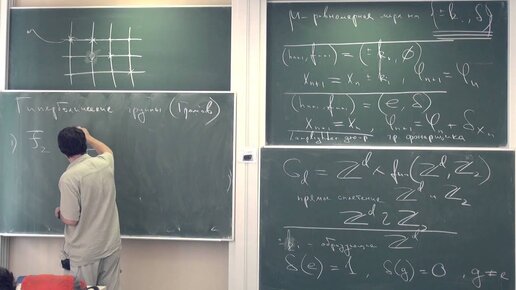 Гиперболические группы (Громов)
1) F₂
μ - равномерная мера на {±kᵢ, δ}
(hₙ₊₁, fₙ₊₁) = (±kᵢ, ∅)
xₙ₊₁ = xₙ ± kᵢ, φₙ₊₁ = φₙ
(hₙ₊₁, fₙ₊₁) = (e, δ)
xₙ₊₁ = xₙ, φₙ₊₁ = φₙ + δ_{xₙ}
Lamplighter group гр. фонарщика
G_d = ℤᵈ ⋌ fin(ℤᵈ, ℤ₂)
прямое сплетение ℤᵈ и ℤ₂
ℤᵈ ≀ ℤ₂
kᵢ - образующие ℤᵈ
δ(e) = 1, δ(g) = 0, g ≠ e